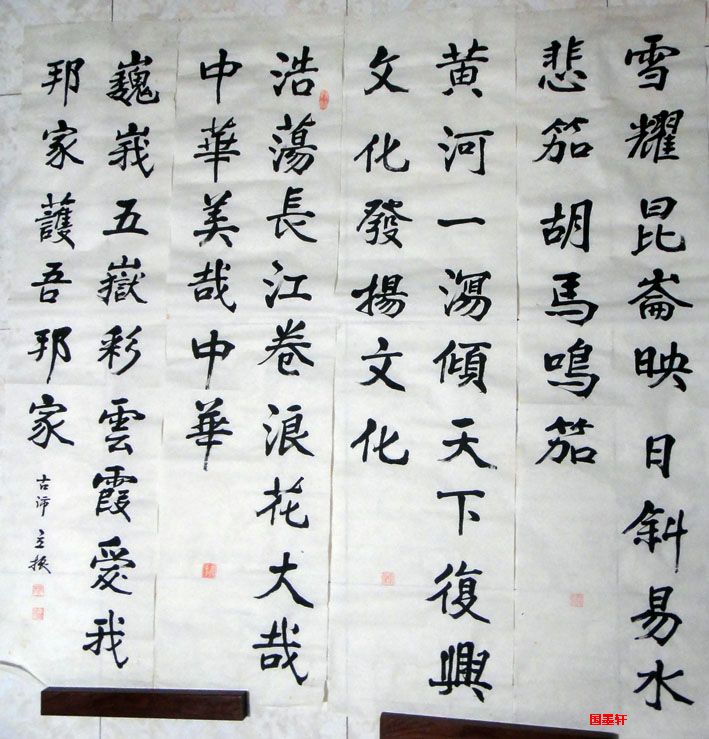 雪耀昆崙映日斜易水
悲笳胡馬鳴笳
黄河一瀉傾天下復興
文化發揚文化
浩蕩長江卷浪花大哉
中華美哉中華
巍峩五嶽彩雲霞愛我
邦家護吾邦家
古沛 立
国墨轩